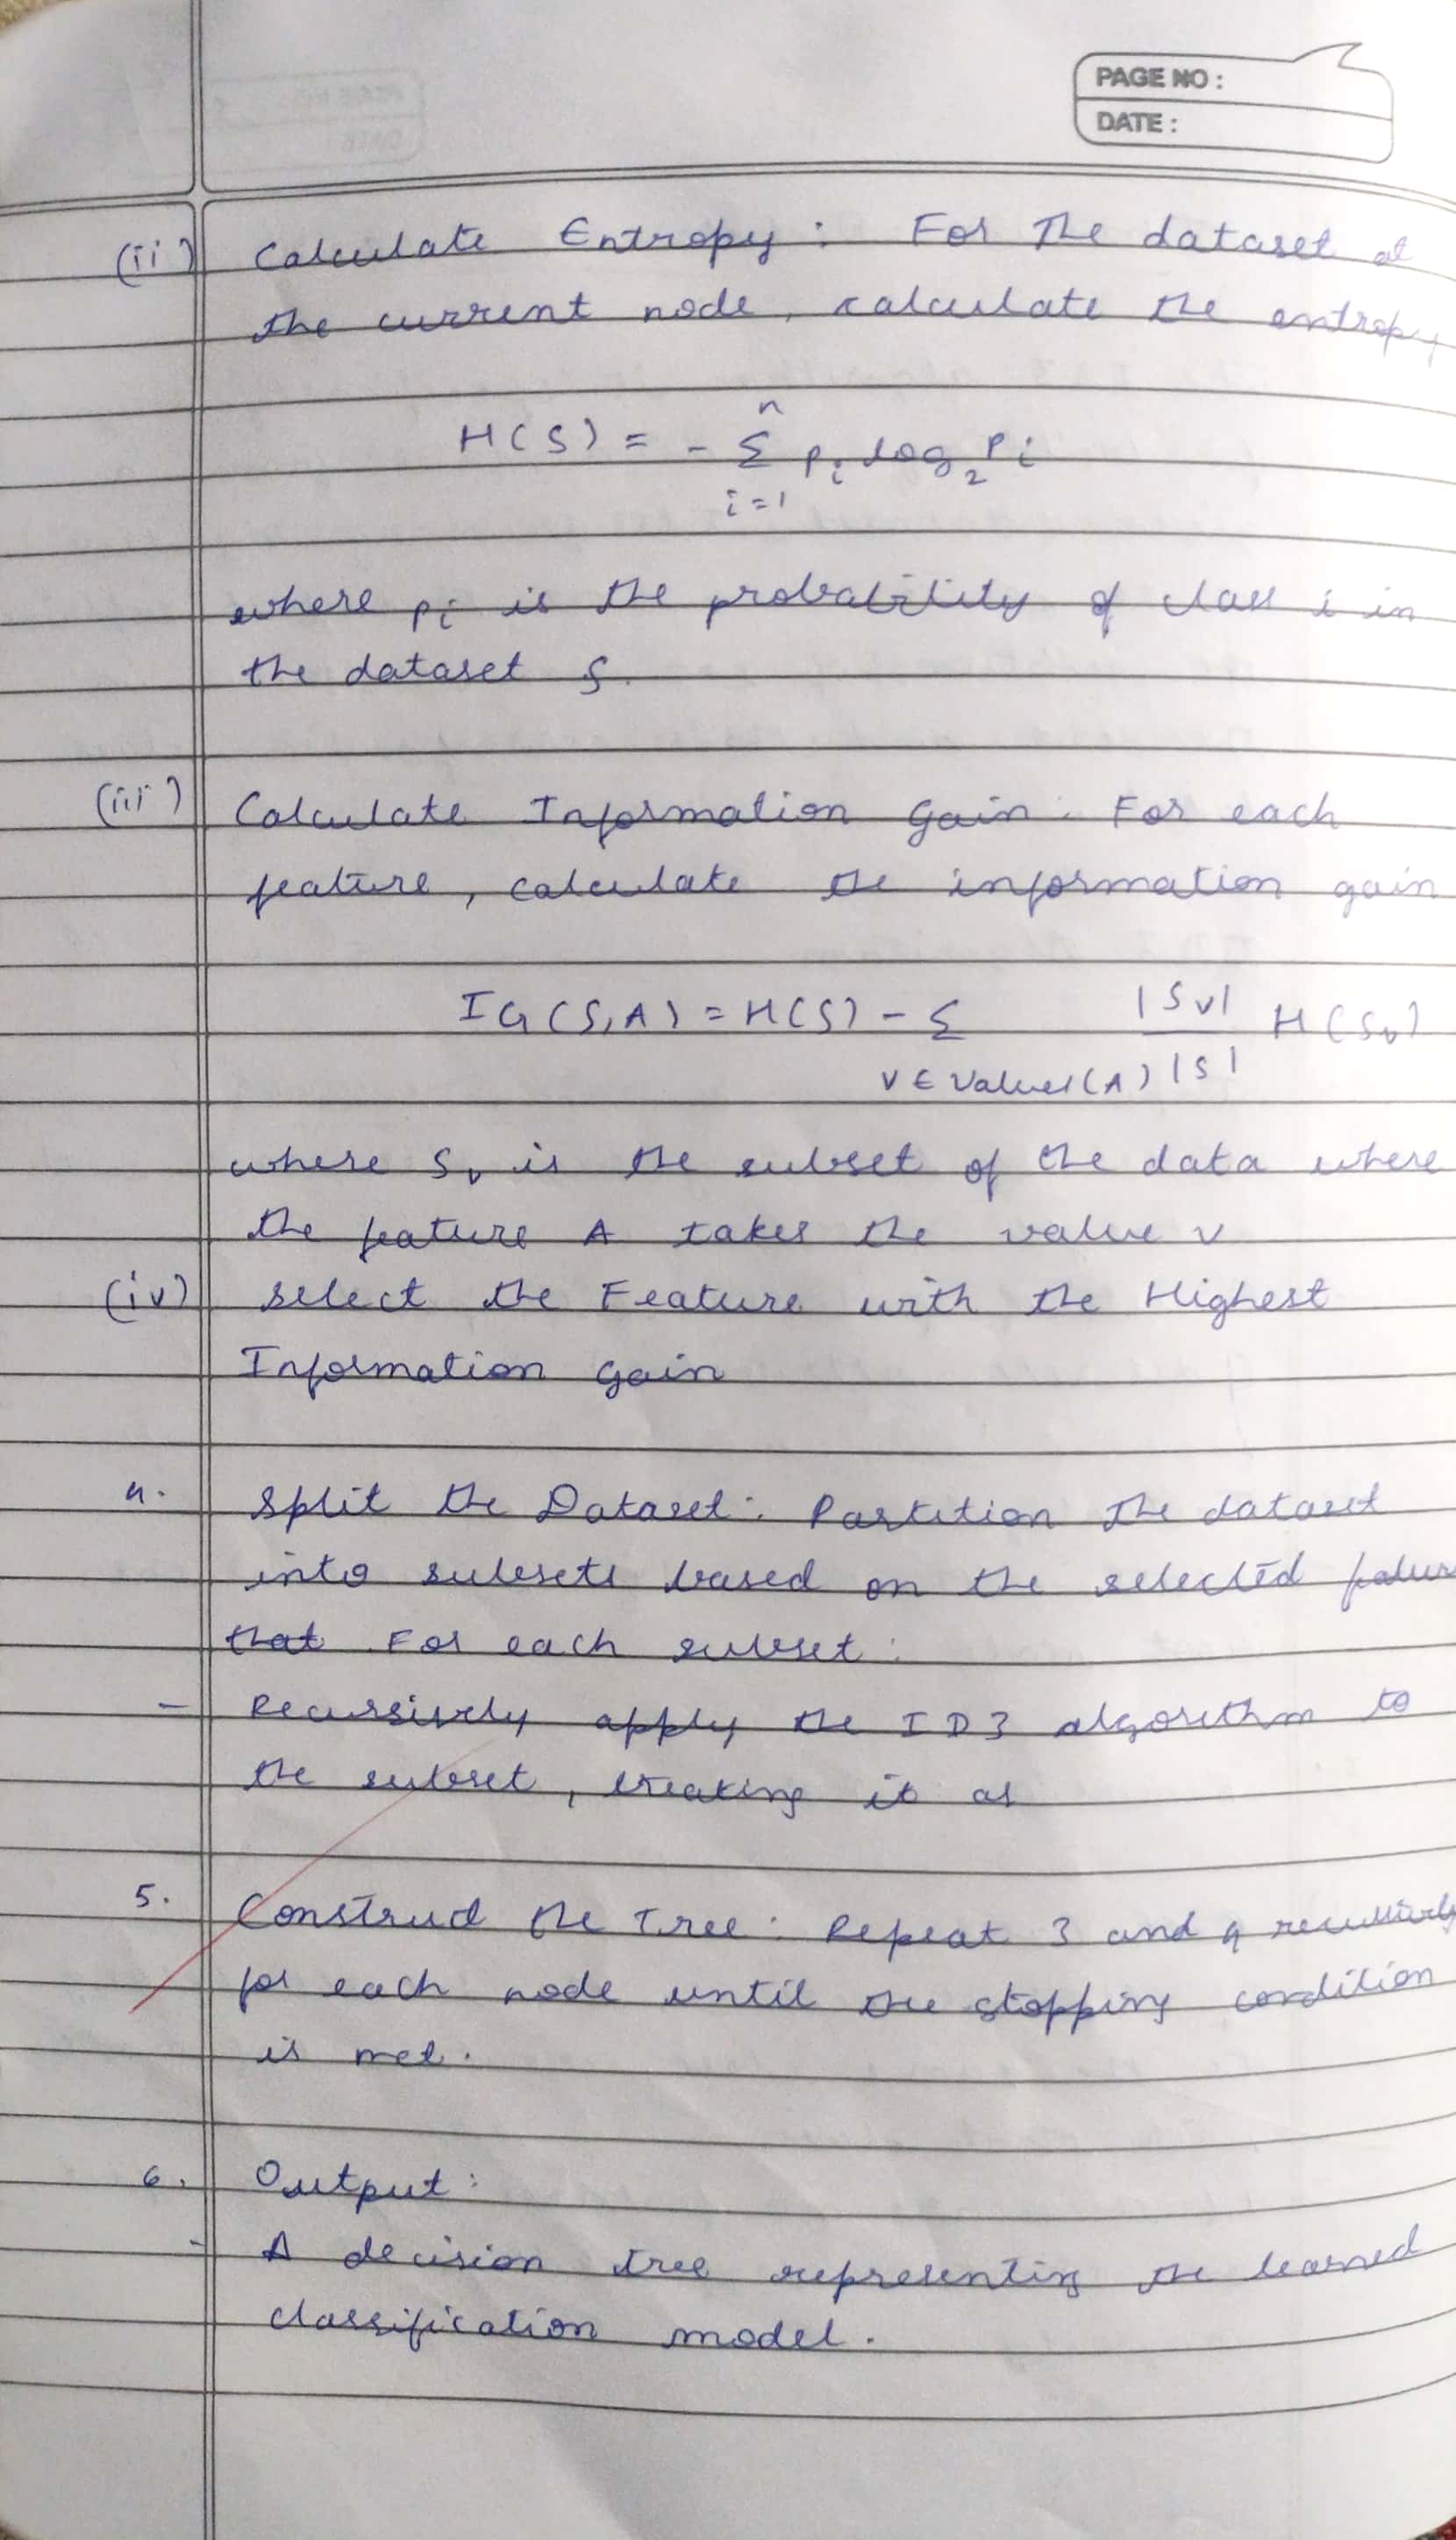 PAGE NO :
DATE :
(ii) Calculate Entropy : For The dataset at
the current node, calculate the entropy
H(S) = - Σ p_i log_2 P_i
n
i=1
where p_i is the probability of class i in
the dataset S.
(iii) Calculate Information Gain : For each
feature, calculate the information gain
IG(S,A) = H(S) - Σ |Sv| H(S_v)
v ∈ Values(A) |S|
where S_v is the subset of the data where
the feature A takes the value v
(iv) select the Feature with the Highest
Information Gain
4. Split the Dataset : Partition the dataset
into subsets based on the selected
that For each subset :
- Recursively apply the ID3 algorithm to
the subset, treating it as
5. Construct the Tree : Repeat 3 and 4 recursively
for each node until the stopping condition
is met.
6. Output :
- A decision tree representing the learned
classification model.